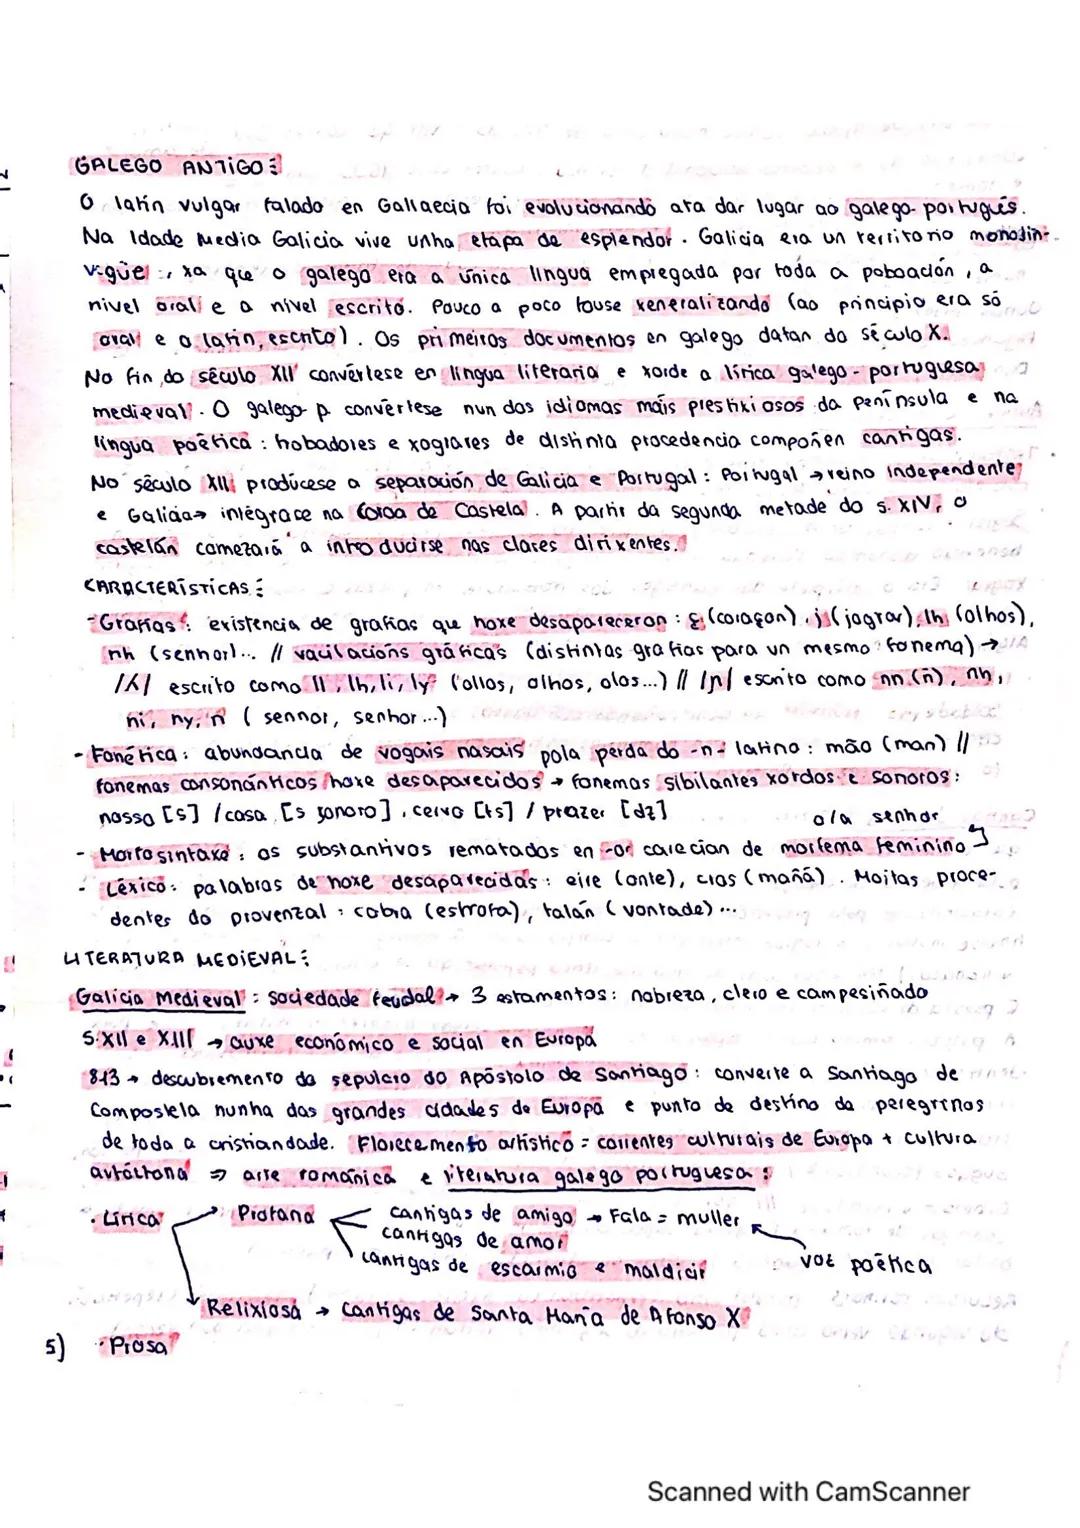 GALEGO ANTIGO:
O latín vulgar falado en Gallaecia foi evolucionando ata dar lugar ao galego-portugués.
Na Idade Media Galicia vive unha etapa de esplendor. Galicia era un territorio monolin-
güe, xa que o galego era a única lingua empregada por toda a poboación, a
nivel oral e a nivel escrito. Pouco a poco fouse xeneralizando (ao principio era só
oral e o latín, escrito). Os primeiros documentos en galego datan do século X.
No fin do século XII convértese en lingua literaria e xorde a lírica galego-portuguesa
medieval. O galego-p. convértese nun dos idiomas máis prestixiosos da península e na
lingua poética: trobadores e xograres de distinta procedencia compoñen cantigas.
No século XII prodúcese a separación de Galicia e Portugal: Portugal → reino independente,
e Galicia → intégrase na Coroa de Castela. A partir da segunda metade do s. XIV, o
castelán comezará a introducirse nas clases dirixentes.
CARACTERÍSTICAS:
- Grafías: existencia de grafías que hoxe desapareceron: ç (coraçon), j (jograr), lh (olhos),
nh (senhor)... // vacilacións gráficas (distintas grafías para un mesmo fonema) →
/ʎ/ escrito como ll, lh, li, ly (ollos, olhos, olos...) // /ɲ/ escrito como nn (ñ), nh,
ni, ny, n (sennor, senhor...)
- Fonética: abundancia de vogais nasais pola perda do -n- latino: mão (man) //
fonemas consonánticos hoxe desaparecidos → fonemas sibilantes xordos e sonoros:
nosso [s] / casa [s sonoro], cervo [ts] / prazer [dz]
o/a senhor
- Morfosintaxe: os substantivos rematados en -or carecían de morfema feminino
- Léxico: palabras de hoxe desaparecidas: eire (onte), cras (mañá). Moitas proce-
dentes do provenzal: cobra (estrofa), talán (vontade)...
LITERATURA MEDIEVAL:
Galicia Medieval: sociedade feudal → 3 estamentos: nobreza, clero e campesiñado
S. XII e XIII → auxe económico e social en Europa
813 → descubremento do sepulcro do Apóstolo de Santiago: converte a Santiago de
Compostela nunha das grandes cidades de Europa e punto de destino de peregrinos
de toda a cristiandade. Florecemento artístico = correntes culturais de Europa + cultura
autóctona ⇒ arte románica e literatura galego portuguesa:
· Lírica → Profana
cantigas de amigo → Fala = muller
cantigas de amor
cantigas de escarnio e maldicir
voz poética
Relixiosa → Cantigas de Santa María de Afonso X
5) · Prosa
Scanned with CamScanner